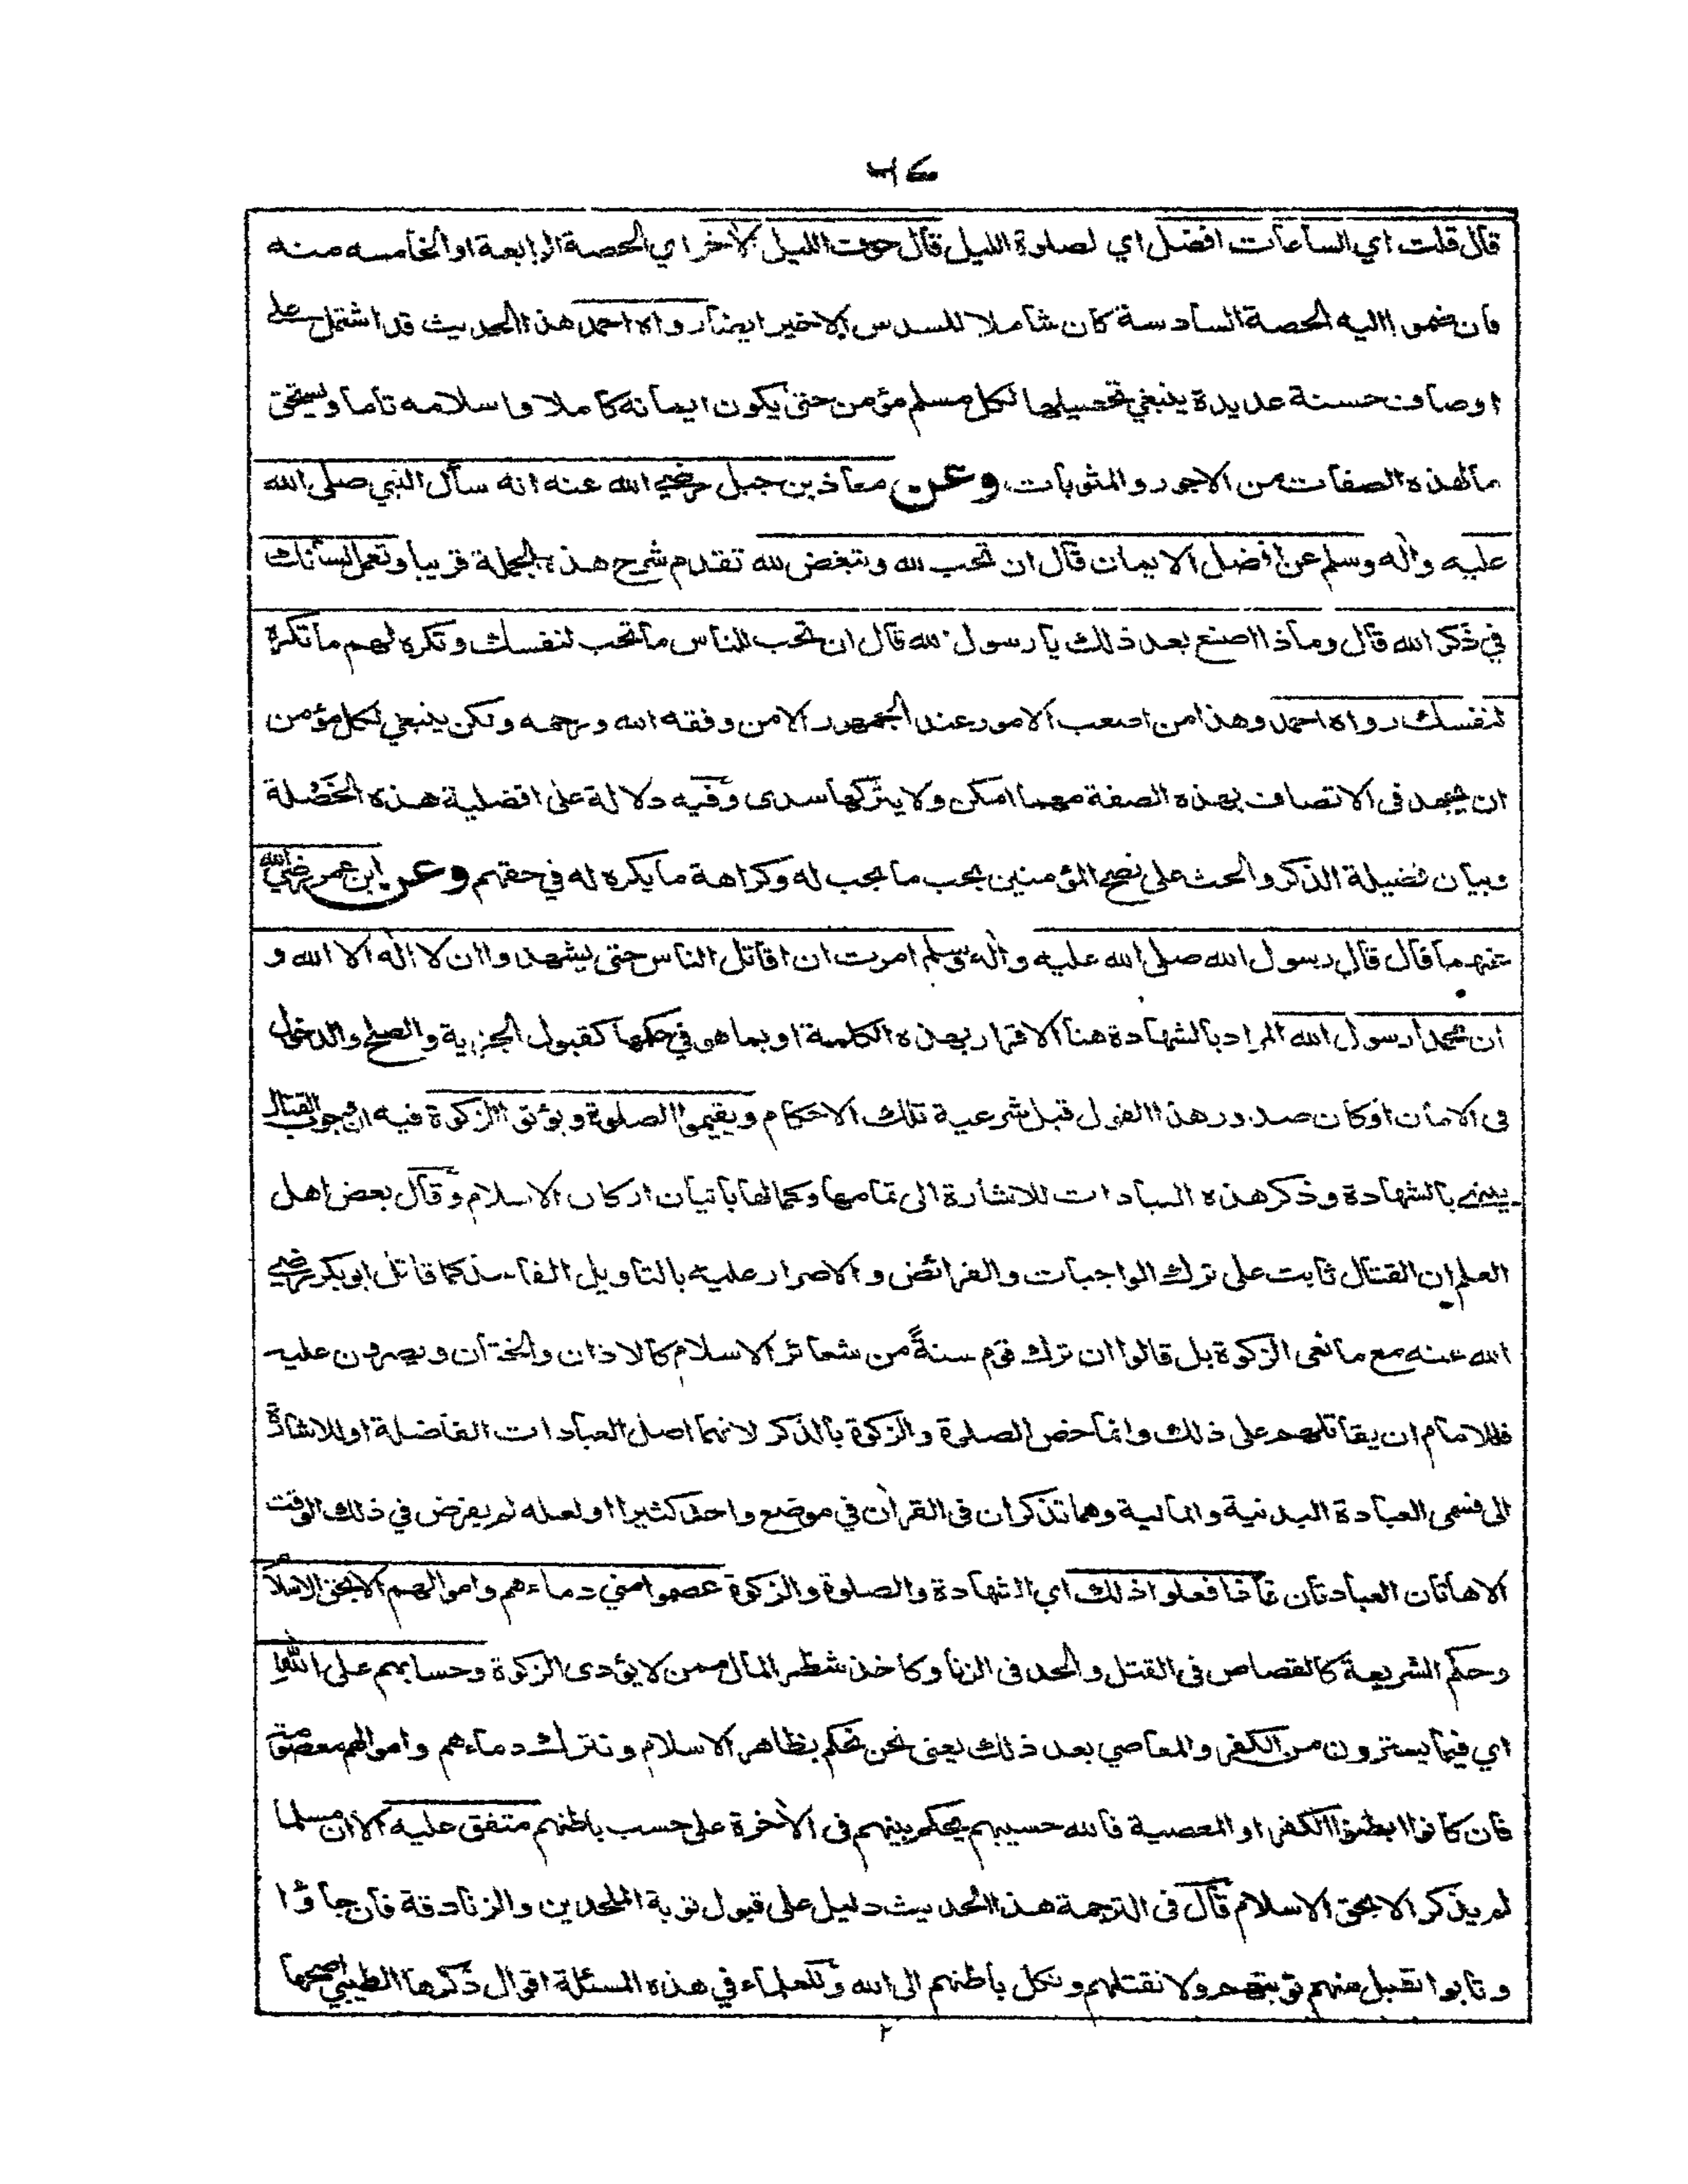 قال قلت اي الساعات افضل اي لصلوة الليل قال جوف الليل الآخر اي الحصة الرابعة او الخامسه منه
فان ضموا اليه الحصة السادسة كان شاملا للسدس الاخير ايضا رواه احمد هذا الحديث قد اشتمل على
اوصاف حسنة عديدة ينبغي تحصيلها لكل مسلم مؤمن حتى يكون ايمانه كاملا واسلامه تاما ويستحق
ما لهذه الصفات من الاجور والمثوبات وعن معاذ بن جبل رضي الله عنه انه سأل النبي صلى الله
عليه وآله وسلم عن افضل الايمان قال ان تحب لله وتبغض لله تقدم شرح هذه الجملة قريبا وتعمل لسانك
في ذكر الله قال وماذا اصنع بعد ذلك يا رسول الله قال ان تحب للناس ما تحب لنفسك وتكره لهم ما تكره
لنفسك رواه احمد وهذا من اصعب الامور عند الجمهور الا من وفقه الله ورحمه ولكن ينبغي لكل مؤمن
ان يجهد فى الاتصاف بهذه الصفة مهما امكن ولا يتركها سدى وفيه دلالة على افضلية هذه الخَصْلة
وبيان فضيلة الذكر والحث على نصح المؤمنين بحب ما يحب له وكراهة ما يكره له في حقهم وعن ابن عمر رضي الله
عنهما قال قال رسول الله صلى الله عليه وآله وسلم امرت ان اقاتل الناس حتى يشهدوا ان لا اله الا الله و
ان محمدا رسول الله المراد بالشهادة هنا الاقرار بهذه الكلمة او بما هو في حكمها كقبول الجزية والصلح والدخول
فى الامان او كان صدور هذا القول قبل شرعية تلك الاحكام ويقيموا الصلوة ويؤتوا الزكوة فيه ان وجوب القتال
بالشهادة وذكر هذه العبادات للاشارة الى تمامها وكمالها باتيان اركان الاسلام وقال بعض اهل
العلم ان القتال ثابت على ترك الواجبات والفرائض والاصرار عليه بالتاويل الفاسد كما قاتل ابو بكر رضي
الله عنه مع مانعى الزكوة بل قالوا ان ترك قوم سنةً من شعائر الاسلام كالاذان والختان ويصرون عليه
فللامام ان يقاتلهم على ذلك وانما خص الصلوة والزكوة بالذكر لانهما اصل العبادات الفاضلة او للاشارة
الى قسمى العبادة البدنية والمالية وهما تذكران فى القرآن في موضع واحد كثيرا او لعله لم يفرض في ذلك الوقت
الا هاتان العبادتان فاذا فعلوا ذلك اي الشهادة والصلوة والزكوة عصموا مني دماءهم واموالهم الا بحق الاسلام
وحكم الشريعة كالقصاص فى القتل والحد فى الزنا وكاخذ شطر المال ممن لا يؤدى الزكوة وحسابهم على الله
اي فيما يسترون من الكفر والمعاصي بعد ذلك يعنى نحن نحكم بظاهر الاسلام ونترك دماءهم واموالهم معصومة
فان كانوا ابطنوا الكفر او المعصية فالله حسيبهم يحكم بينهم فى الآخرة على حسب باطنهم متفق عليه الا ان مسلما
لم يذكر الا بحق الاسلام قال فى الترجمة هذا الحديث دليل على قبول توبة الملحدين والزنادقة فان جاؤا
وتابوا تقبل منهم توبتهم ولا نقتلهم ونكل باطنهم الى الله وللعلماء في هذه المسئلة اقوال ذكرها الطيبي اصحها
٢